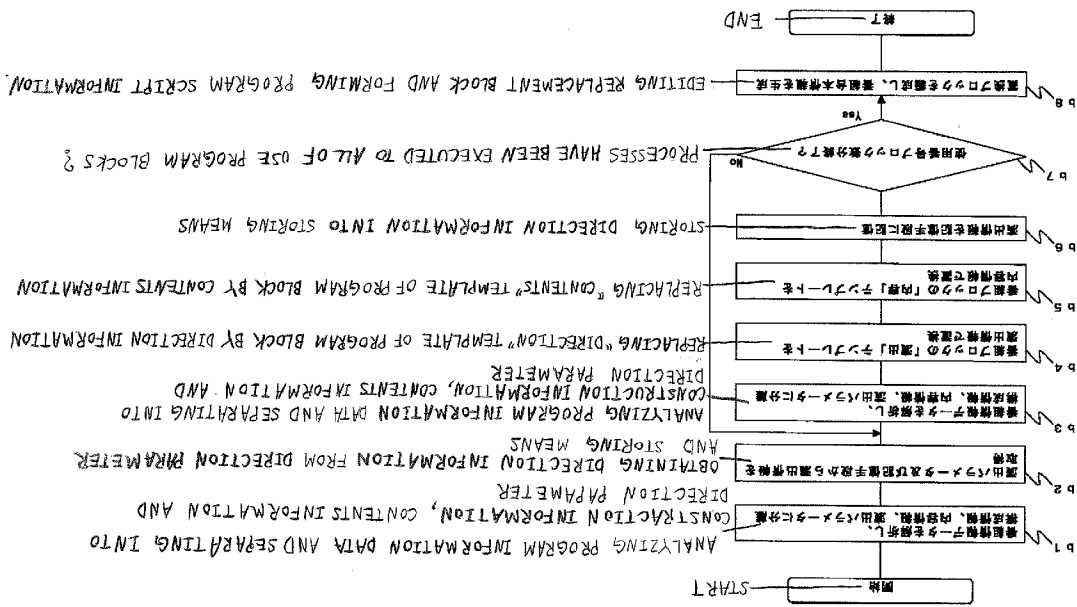 開始
START
b1
番組情報データを解析し、
構成情報、内容情報、演出パラメータに分離
ANALYZING PROGRAM INFORMATION DATA AND SEPARATING INTO
CONSTRACTION INFORMATION, CONTENTS INFORMATION AND
DIRECTION PAPAMETER
b2
演出パラメータ及び記憶手段から演出情報を
取得
OBTAINING DIRECTION INFORMATION FROM DIRECTION PARAMETER
AND STORING MEANS
b3
番組情報データを解析し、
構成情報、内容情報、演出パラメータに分離
ANALYZING PROGRAM INFORMATION DATA AND SEPARATING INTO
CONSTRUCTION INFORMATION, CONTENTS INFORMATION AND
DIRECTION PARAMETER
b4
番組ブロックの「演出」テンプレートを
演出情報で置換
REPLACING "DIRECTION" TEMPLATE OF PROGRAM BLOCK BY DIRECTION INFORMATION
b5
番組ブロックの「内容」テンプレートを
内容情報で置換
REPLACING "CONTENTS" TEMPLATE OF PROGRAM BLOCK BY CONTENTS INFORMATION
b6
演出情報を記憶手段に記憶
STORING DIRECTION INFORMATION INTO STORING MEANS
b7
使用番号ブロック数分終了?
No
PROCESSES HAVE BEEN EXECUTED TO ALL OF USE PROGRAM BLOCKS?
Yes
b8
置換ブロックを編成し、番組台本情報を生成
EDITING REPLACEMENT BLOCK AND FORMING PROGRAM SCRIPT INFORMATION.
終了
END